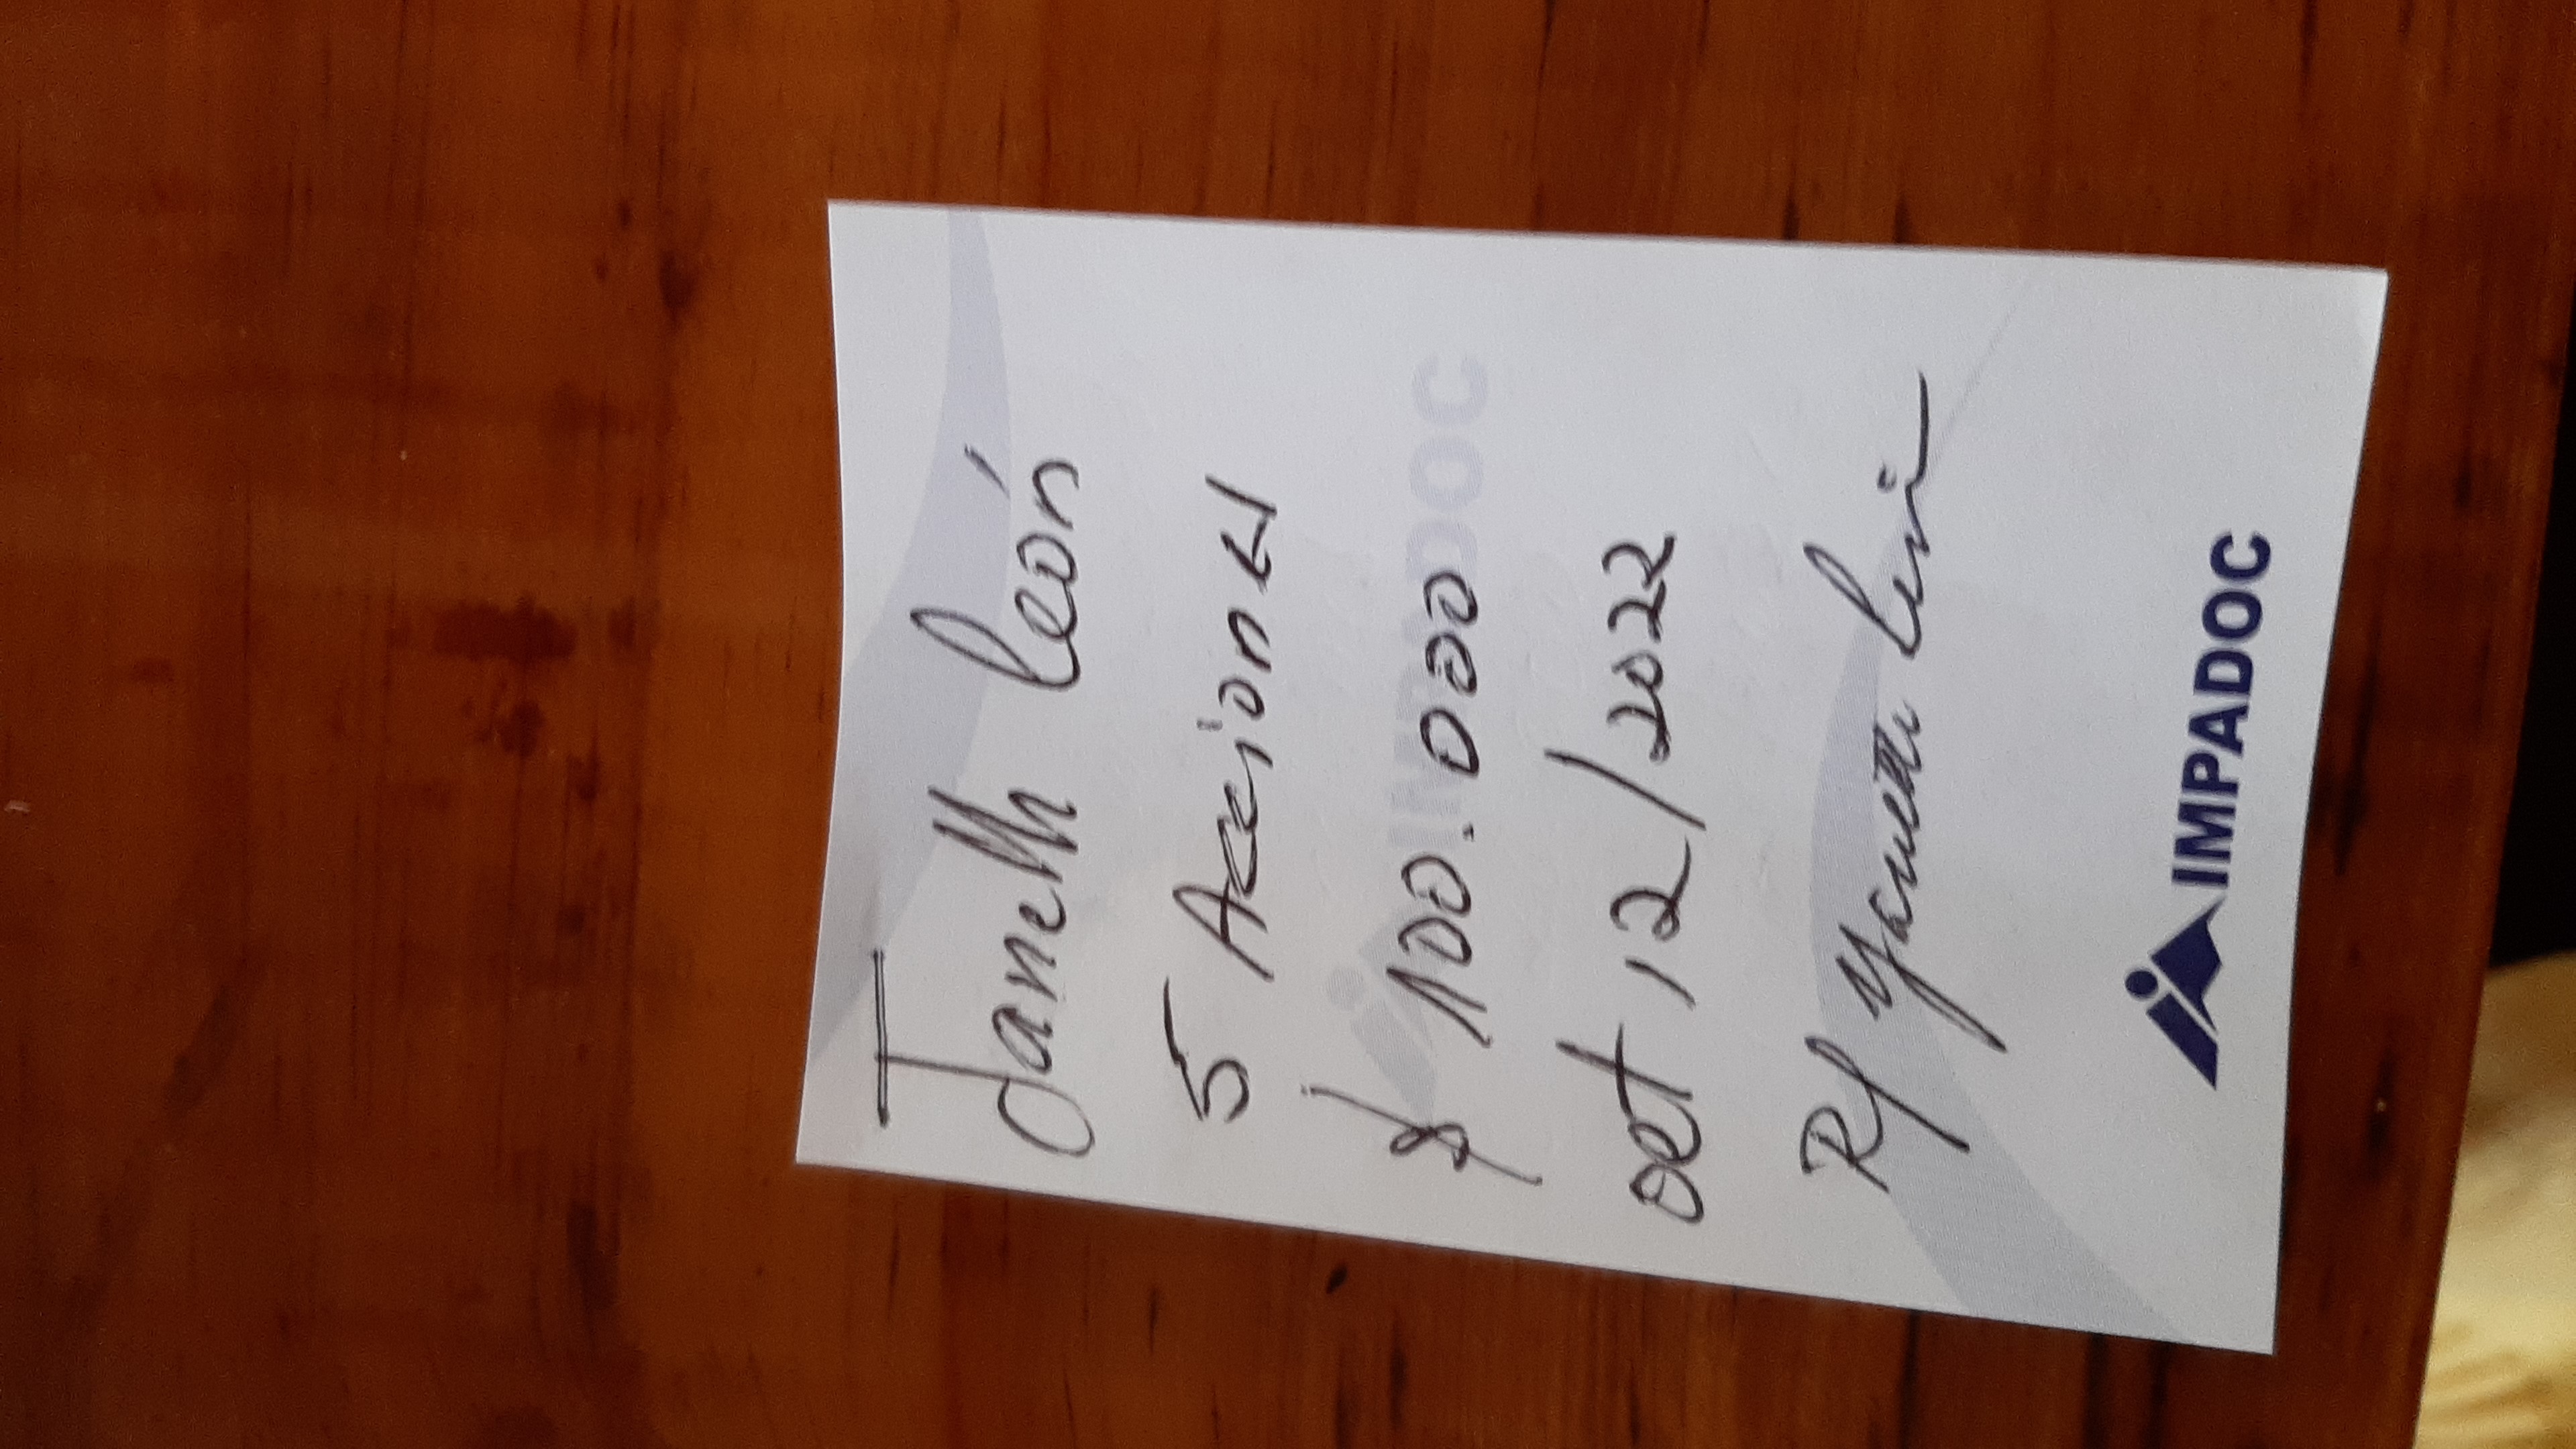 Janeth León
5 Acciones
$ 100.000
IMPADOC
oct 12/2022
R/ Yaneth León
IMPADOC